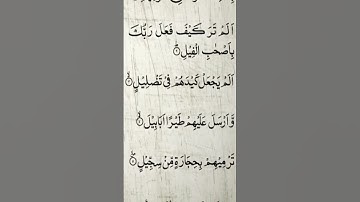 اَلَمْ تَرَ كَيْفَ فَعَلَ رَبُّكَ
بِاَصْحٰبِ الْفِيْلِ ۟ؕ
اَلَمْ يَجْعَلْ كَيْدَهُمْ فِيْ تَضْلِيْلٍ ۟ۙ
وَّ اَرْسَلَ عَلَيْهِمْ طَيْرًا اَبَابِيْلَ ۟ۙ
تَرْمِيْهِمْ بِحِجَارَةٍ مِّنْ سِجِّيْلٍ ۟ۙ